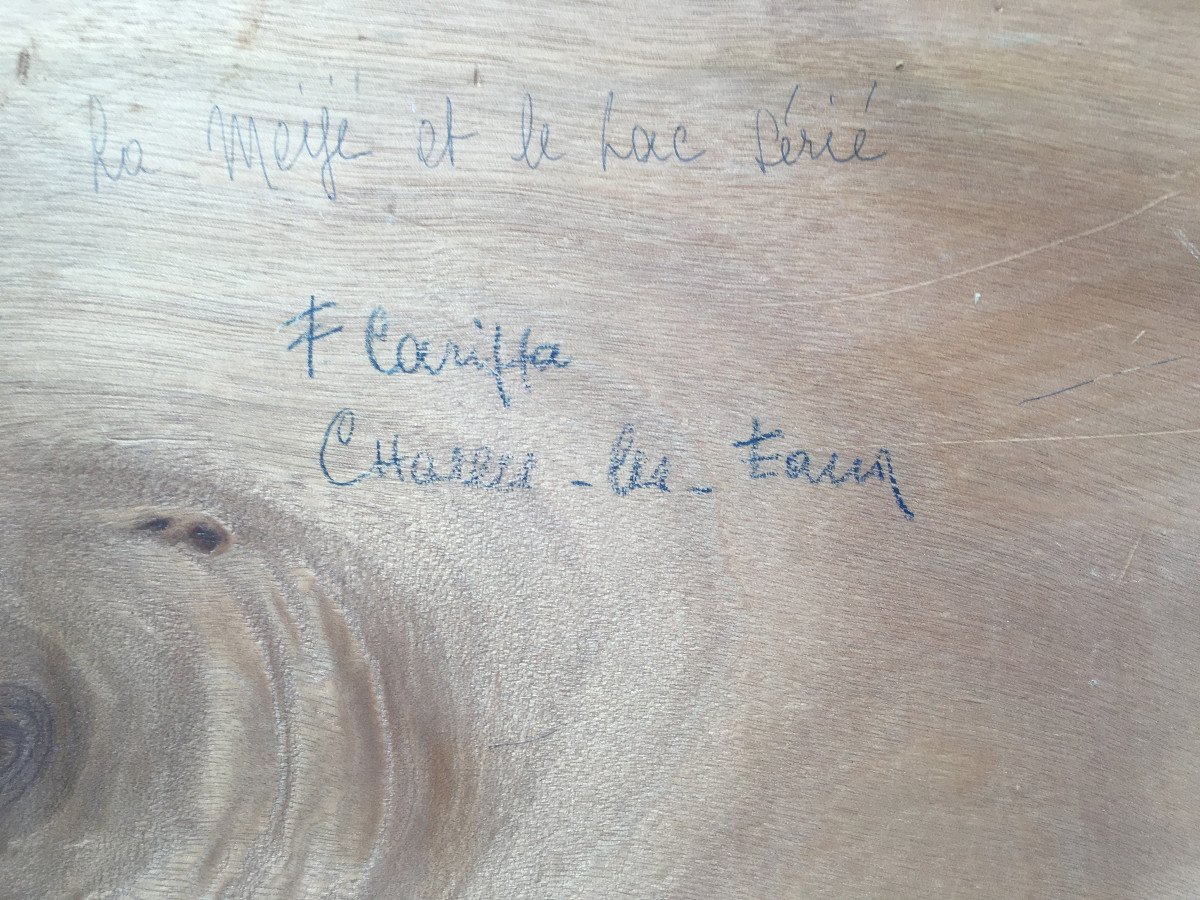 La Meije et le Lac Lérié
F Cariffa
CHalles-les-Eaux